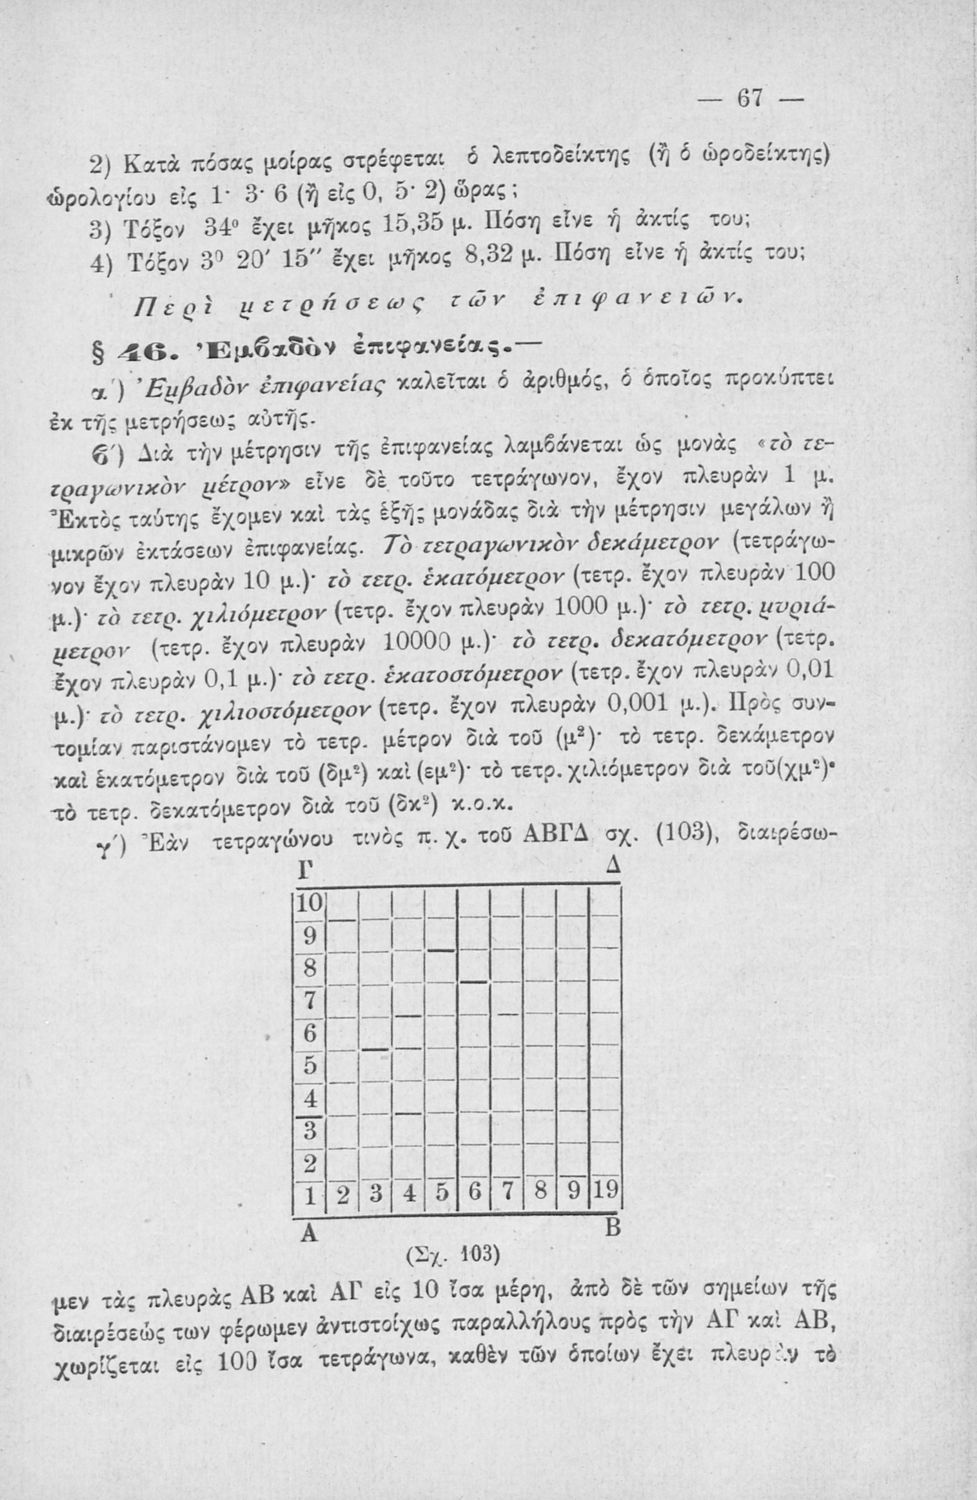 — 67 —
2) Κατὰ πόσας μοίρας στρέφεται ὁ λεπτοδείκτης (ἢ ὁ ὡροδείκτης)
ὡρολογίου εἰς 1· 3· 6 (ἢ εἰς 0, 5· 2) ὥρας ;
3) Τόξον 34° ἔχει μῆκος 15,35 μ. Πόση εἶνε ἡ ἀκτίς του;
4) Τόξον 3° 20′ 15′′ ἔχει μῆκος 8,32 μ. Πόση εἶνε ἡ ἀκτίς του;
Περὶ μετρήσεως τῶν ἐπιφανειῶν.
§ 46. Ἐμβαδὸν ἐπιφανείας.—
α΄) Ἐμβαδὸν ἐπιφανείας καλεῖται ὁ ἀριθμός, ὁ ὁποῖος προκύπτει
ἐκ τῆς μετρήσεως αὐτῆς.
ϐ΄) Διὰ τὴν μέτρησιν τῆς ἐπιφανείας λαμϐάνεται ὡς μονὰς «τὸ τε-
τραγωνικὸν μέτρον» εἶνε δὲ τοῦτο τετράγωνον, ἔχον πλευρὰν 1 μ.
Ἐκτὸς ταύτης ἔχομεν καὶ τὰς ἑξῆς μονάδας διὰ τὴν μέτρησιν μεγάλων ἢ
μικρῶν ἐκτάσεων ἐπιφανείας. Τὸ τετραγωνικὸν δεκάμετρον (τετράγω-
νον ἔχον πλευρὰν 10 μ.)· τὸ τετρ. ἑκατόμετρον (τετρ. ἔχον πλευρὰν 100
μ.)· τὸ τετρ. χιλιόμετρον (τετρ. ἔχον πλευρὰν 1000 μ.)· τὸ τετρ. μυριά-
μετρον (τετρ. ἔχον πλευρὰν 10000 μ.)· τὸ τετρ. δεκατόμετρον (τετρ.
ἔχον πλευρὰν 0,1 μ.)· τὸ τετρ. ἑκατοστόμετρον (τετρ. ἔχον πλευρὰν 0,01
μ.)· τὸ τετρ. χιλιοστόμετρον (τετρ. ἔχον πλευρὰν 0,001 μ.). Πρὸς συν-
τομίαν παριστάνομεν τὸ τετρ. μέτρον διὰ τοῦ (μ²)· τὸ τετρ. δεκάμετρον
καὶ ἑκατόμετρον διὰ τοῦ (δμ²) καὶ (εμ²)· τὸ τετρ. χιλιόμετρον διὰ τοῦ(χμ²)·
τὸ τετρ. δεκατόμετρον διὰ τοῦ (δκ²) κ.ο.κ.
γ΄) Ἐὰν τετραγώνου τινὸς π. χ. τοῦ ΑΒΓΔ σχ. (103), διαιρέσω-
Γ Δ
10
9
8
7
6
5
4
3
2
1 2 3 4 5 6 7 8 9 19
Α Β
(Σχ. 103)
μεν τὰς πλευρὰς ΑΒ καὶ ΑΓ εἰς 10 ἴσα μέρη, ἀπὸ δὲ τῶν σημείων τῆς
διαιρέσεώς των φέρωμεν ἀντιστοίχως παραλλήλους πρὸς τὴν ΑΓ καὶ ΑΒ,
χωρίζεται εἰς 100 ἴσα τετράγωνα, καθὲν τῶν ὁποίων ἔχει πλευρὰν τὸ